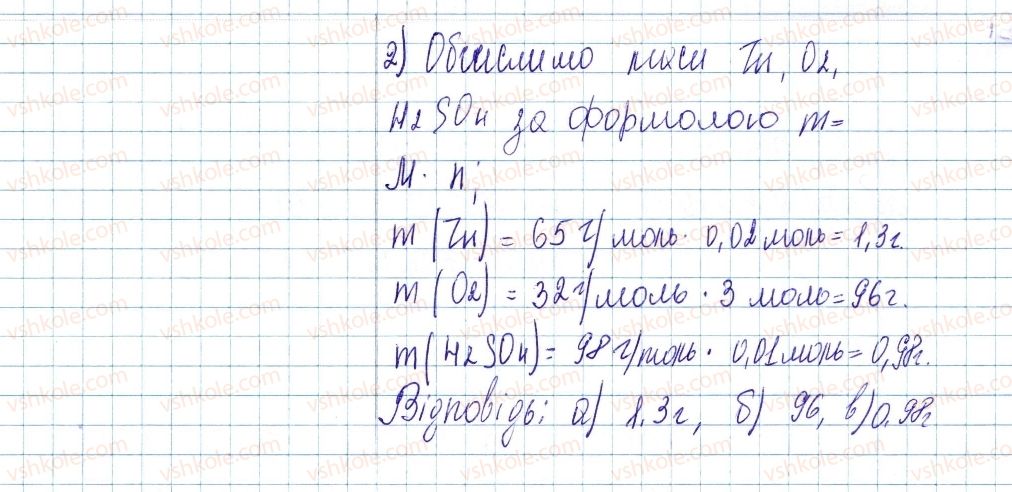 2) Обчислимо маси Zn, O2,
H2SO4 за формолою m=
M · n;
m (Zn) = 65 г/моль · 0,02 моль = 1,3г.
m (O2) = 32 г/моль · 3 моль = 96г.
m (H2SO4) = 98 г/моль · 0,01 моль = 0,98г.
Відповідь: а) 1.3г, б) 96, в) 0.98г